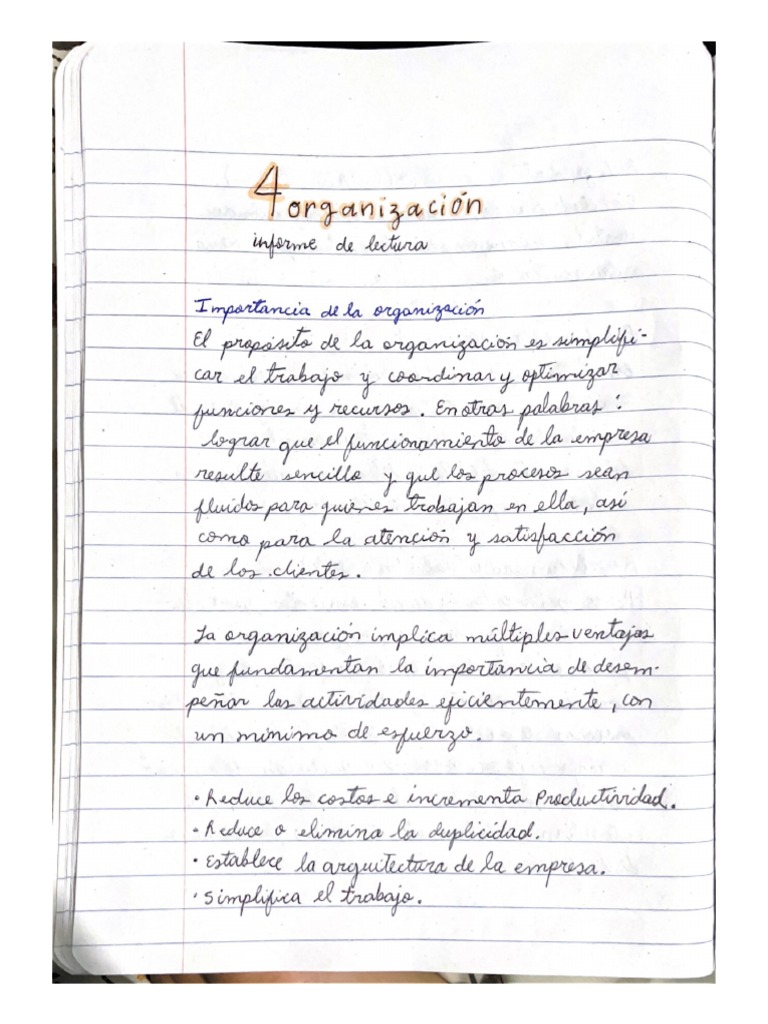 4 organización
informe de lectura
Importancia de la organización
El propósito de la organización es simplifi-
car el trabajo y coordinar y optimizar
funciones y recursos. En otras palabras:
lograr que el funcionamiento de la empresa
resulte sencillo y que los procesos sean
fluidos para quienes trabajan en ella, así
como para la atención y satisfacción
de los clientes.
La organización implica múltiples ventajas
que fundamentan la importancia de desem-
peñar las actividades eficientemente, con
un mínimo de esfuerzo.
• Reduce los costos e incrementa Productividad.
• Reduce o elimina la duplicidad.
• Establece la arquitectura de la empresa.
• Simplifica el trabajo.